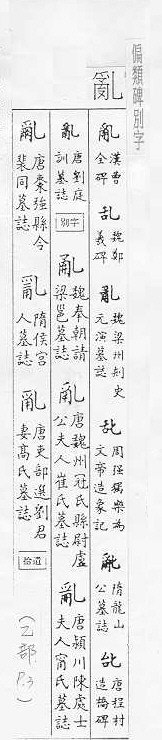 偏類碑別字
亂
亂 漢曹全碑 乱 魏鄭義碑 亂 魏梁州刺史元演墓誌 乱 周強獨樂為文帝造象記 亂 隋龍山公墓誌 乨 唐程村造橋碑
亂 唐劉庭訓墓誌 別字 亂 魏奉朝請梁邕墓誌 亂 唐魏州冠氏縣尉盧公夫人崔氏墓誌 亂 唐潁川陳處士夫人甯氏墓誌
亂 唐棗強縣令裴同墓誌 亂 隋侯宮人墓誌 亂 唐吏部選劉君妻髙氏墓誌 拾遺
(乙部 P.3)